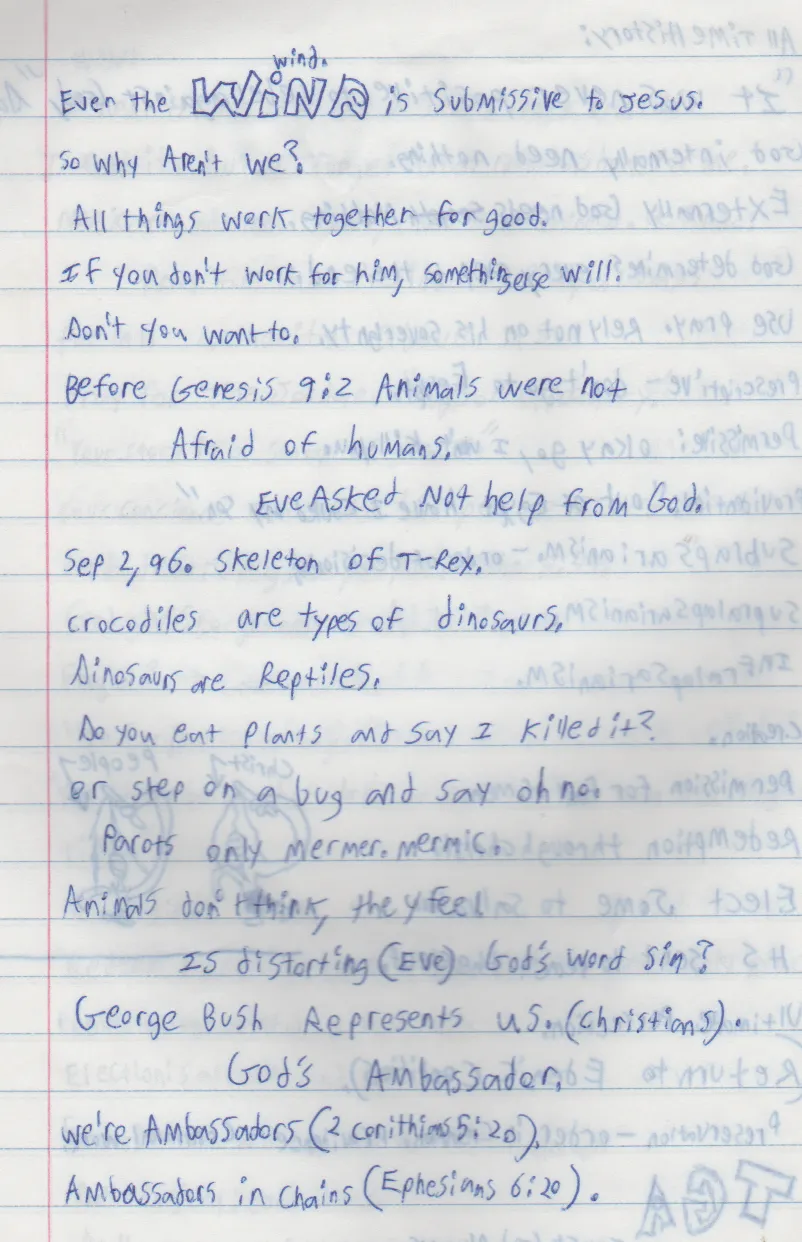 wind.
Even the WiND is Submissive to Jesus.
So Why Aren't we?
All things work together for good.
If you don't work for him, something else will.
Don't you want to.
Before Genesis 9:2 Animals were not
Afraid of humans.
Eve Asked Not help from God.
Sep 2, 96. Skeleton of T-Rex.
crocodiles are types of dinosaurs.
Dinosaurs are Reptiles.
Do you eat plants and say I killed it?
or step on a bug and say oh no.
Parots only mermer. mermic.
Animals don't think, they feel
Is distorting (Eve) God's word sin?
George Bush Represents us. (Christians).
God's Ambassador.
we're Ambassadors (2 corithians 5:20).
Ambassadors in chains (Ephesians 6:20).